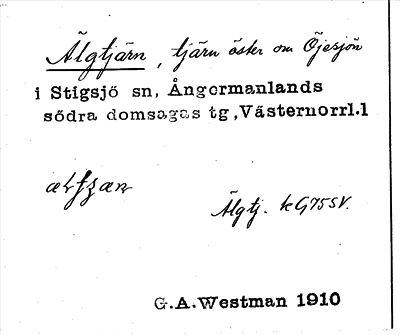 Älgtjärn, tjärn öster om Öjesjön
i Stigsjö sn, Ångermanlands
södra domsagas tg,Västernorrl.l
Älgtj. kG75SV.
G.A.Westman 1910